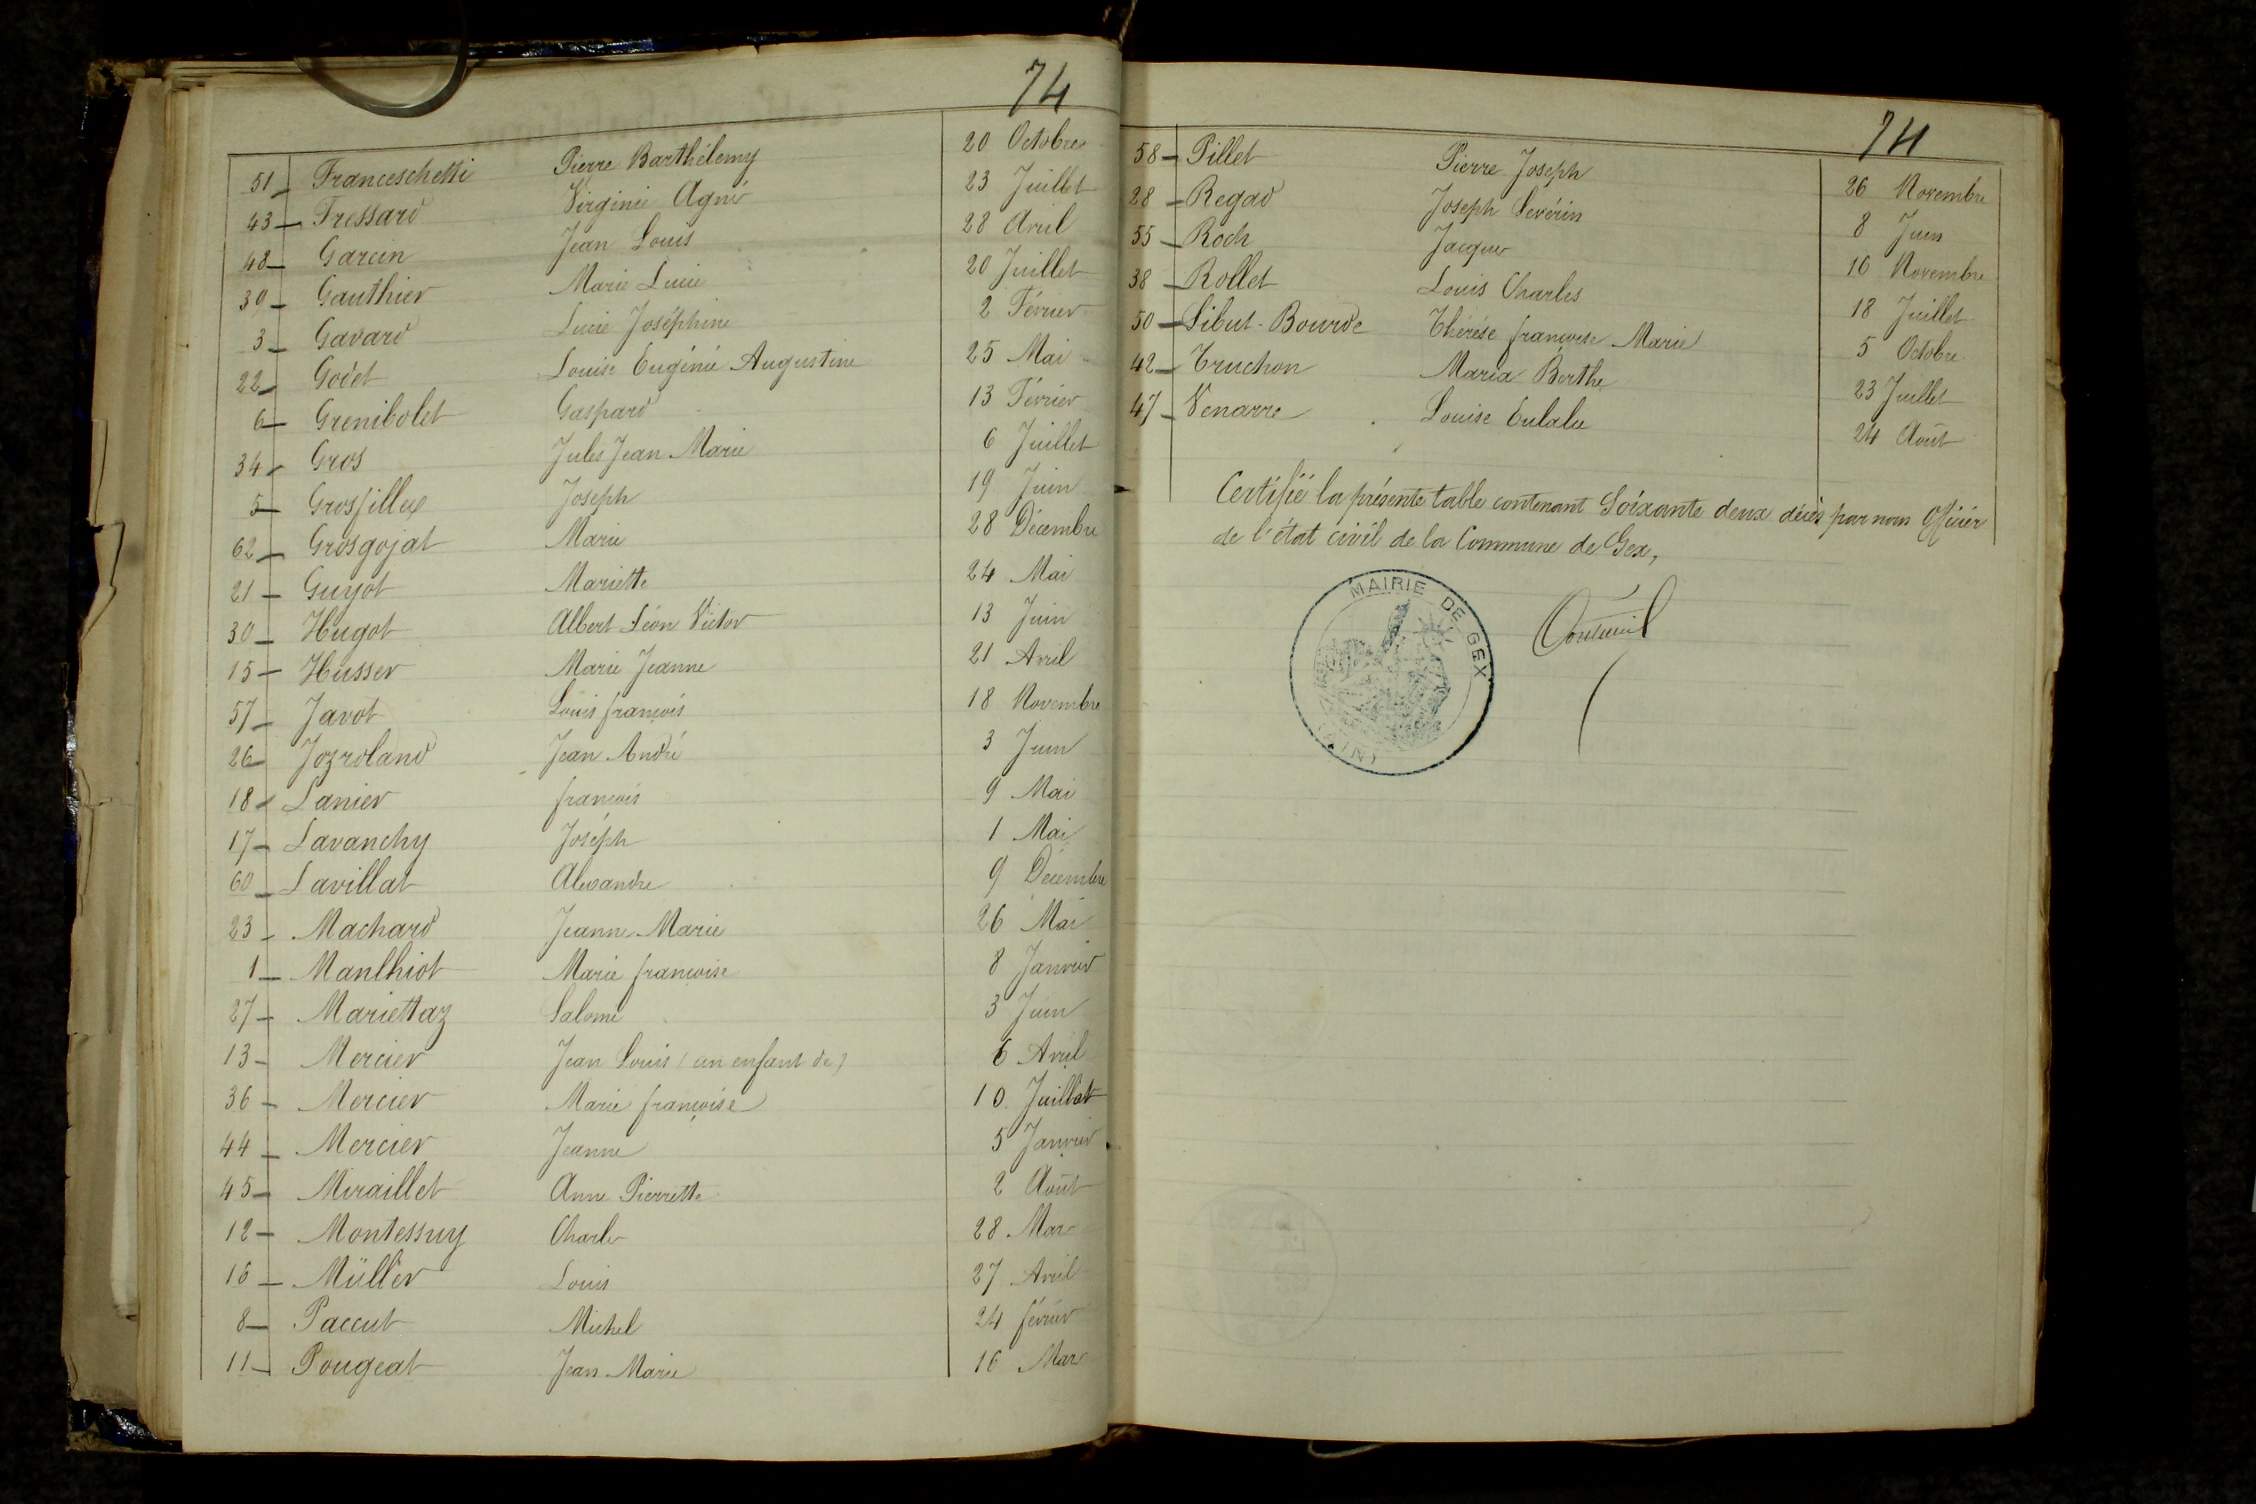 74
51 Franceschetti Pierre Barthélemy 20 Octobre
43 Fressard Virginie Agné 23 Juillet
48 Garcin Jean Louis 28 Avril
39 Gauthier Marie Lucie 20 Juillet
3 Gavard Lucie Joséphine 2 Février
22 Godet Louise Eugénie Augustine 25 Mai
6 Grenibolet Gaspard 13 Février
34 Gros Jules Jean Marie 6 Juillet
5 Grosfillex Joseph 19 Juin
62 Grosgojat Marie 28 Décembre
21 Guyot Mariette 24 Mai
30 Hugot Albert Léon Victor 13 Juin
15 Husser Marie Jeanne 21 Avril
57 Javot Louis françois 18 Novembre
26 Jozroland Jean André 3 Juin
18 Lanier françois 9 Mai
17 Lavanchy Joséph 1 Mai
60 Lavillat Alexandre 9 Décembre
23 Machard Jeanne Marie 26 Mai
1 Manlhiot Marie françoise 8 Janvier
27 Mariettaz Salomé 3 Juin
13 Mercier Jean Louis (un enfant de) 6 Avril
36 Mercier Marie françoise 10 Juillet
44 Mercier Jeanne 5 Janvier
45 Miraillet Anne Pierrette 2 Août
12 Montessuy Charles 28 Mars
16 Müller Louis 27 Avril
8 Paccut Michel 24 février
11 Pougeat Jean Marie 16 Mars
74
58 Pillet Pierre Joseph 26 Novembre
28 Regad Joseph Sévérin 8 Juin
55 Roch Jacques 16 Novembre
38 Rollet Louis Charles 18 Juillet
50 Sibut-Bourde Thérése françoise Marie 5 Octobre
42 Truchon Maria Berthe 23 Juillet
47 Venarre Louise Eulalie 24 Août
Certifié la présente table contenant Soixante deux décès par nous Officier
de l'état civil de la Commune de Gex,
MAIRIE DE GEX
(AIN)